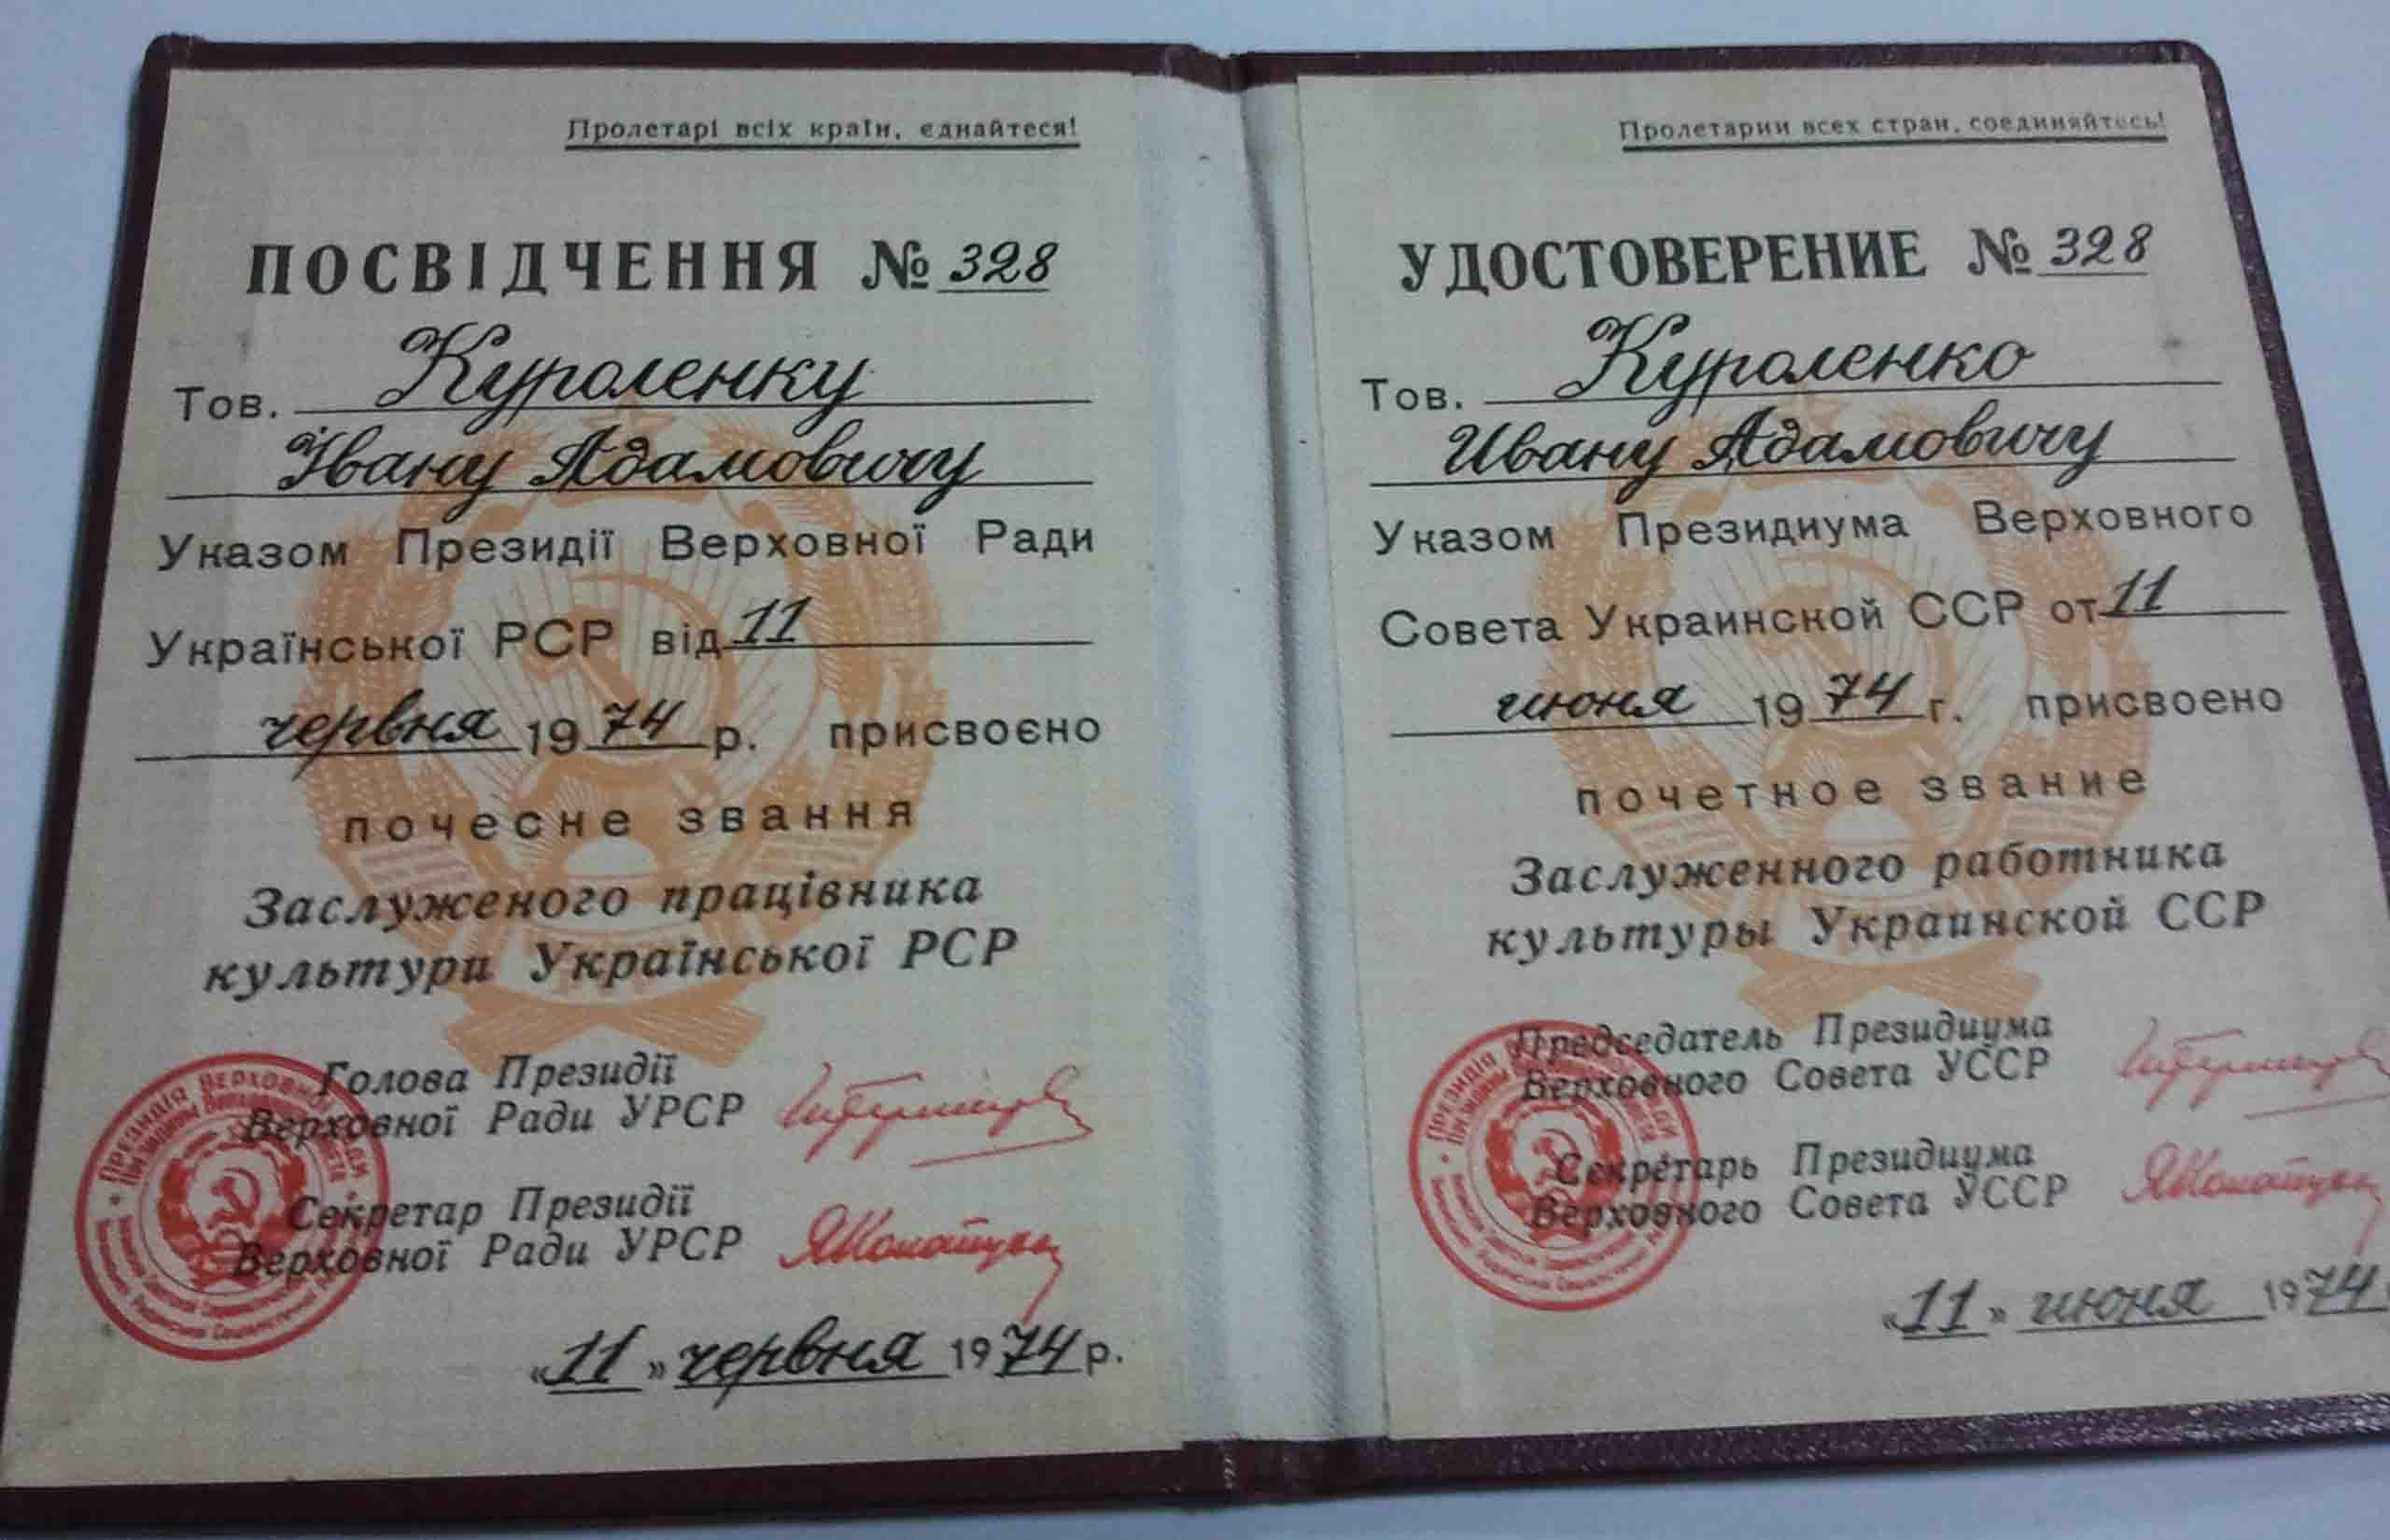 Пролетарі всіх країн, єднайтеся!
ПОСВІДЧЕННЯ № 328
Тов. Куроленку
Івану Адамовичу
Указом Президії Верховної Ради
Української РСР від 11
червня 1974 р. присвоєно
почесне звання
Заслуженого працівника
культури Української РСР
Голова Президії
Верховної Ради УРСР
Секретар Президії
Верховної Ради УРСР
«11» червня 1974 р.
Пролетарии всех стран, соединяйтесь!
УДОСТОВЕРЕНИЕ № 328
Тов. Куроленко
Ивану Адамовичу
Указом Президиума Верховного
Совета Украинской ССР от 11
июня 1974 г. присвоено
почетное звание
Заслуженного работника
культуры Украинской ССР
Председатель Президиума
Верховного Совета УССР
Секретарь Президиума
Верховного Совета УССР
«11» июня 1974